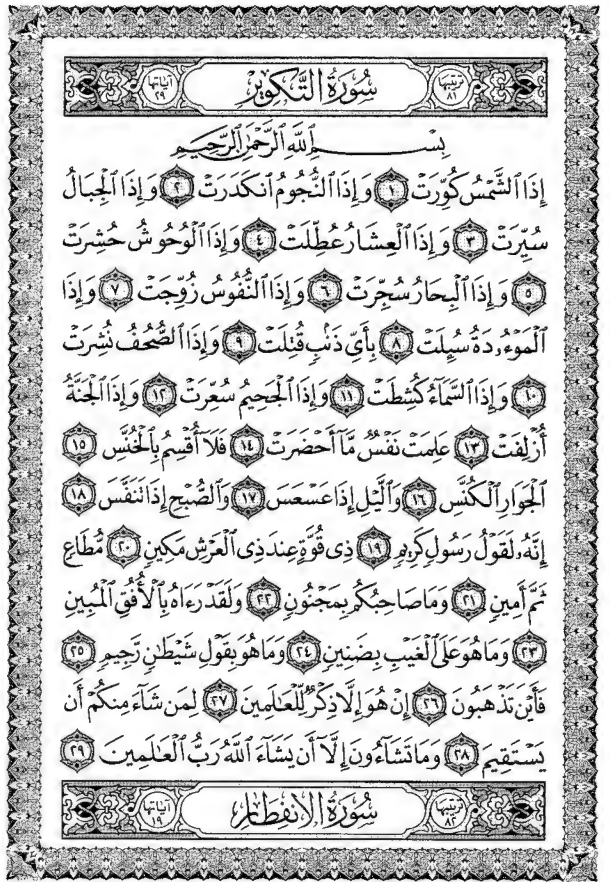 ترتيبها ٨١ سُورَةُ التَّكْوِير آياتها ٢٩
بِسْمِ ٱللَّهِ ٱلرَّحْمَٰنِ ٱلرَّحِيمِ
إِذَا ٱلشَّمْسُ كُوِّرَتْ ١ وَإِذَا ٱلنُّجُومُ ٱنكَدَرَتْ ٢ وَإِذَا ٱلْجِبَالُ
سُيِّرَتْ ٣ وَإِذَا ٱلْعِشَارُ عُطِّلَتْ ٤ وَإِذَا ٱلْوُحُوشُ حُشِرَتْ
٥ وَإِذَا ٱلْبِحَارُ سُجِّرَتْ ٦ وَإِذَا ٱلنُّفُوسُ زُوِّجَتْ ٧ وَإِذَا
ٱلْمَوْءُۥدَةُ سُئِلَتْ ٨ بِأَىِّ ذَنۢبٍ قُتِلَتْ ٩ وَإِذَا ٱلصُّحُفُ نُشِرَتْ
١٠ وَإِذَا ٱلسَّمَآءُ كُشِطَتْ ١١ وَإِذَا ٱلْجَحِيمُ سُعِّرَتْ ١٢ وَإِذَا ٱلْجَنَّةُ
أُزْلِفَتْ ١٣ عَلِمَتْ نَفْسٌ مَّآ أَحْضَرَتْ ١٤ فَلَآ أُقْسِمُ بِٱلْخُنَّسِ ١٥
ٱلْجَوَارِ ٱلْكُنَّسِ ١٦ وَٱلَّيْلِ إِذَا عَسْعَسَ ١٧ وَٱلصُّبْحِ إِذَا تَنَفَّسَ ١٨
إِنَّهُۥ لَقَوْلُ رَسُولٍ كَرِيمٍ ١٩ ذِى قُوَّةٍ عِندَ ذِى ٱلْعَرْشِ مَكِينٍ ٢٠ مُّطَاعٍ
ثَمَّ أَمِينٍ ٢١ وَمَا صَاحِبُكُم بِمَجْنُونٍ ٢٢ وَلَقَدْ رَءَاهُ بِٱلْأُفُقِ ٱلْمُبِينِ
٢٣ وَمَا هُوَ عَلَى ٱلْغَيْبِ بِضَنِينٍ ٢٤ وَمَا هُوَ بِقَوْلِ شَيْطَٰنٍ رَّجِيمٍ ٢٥
فَأَيْنَ تَذْهَبُونَ ٢٦ إِنْ هُوَ إِلَّا ذِكْرٌ لِّلْعَٰلَمِينَ ٢٧ لِمَن شَآءَ مِنكُمْ أَن
يَسْتَقِيمَ ٢٨ وَمَا تَشَآءُونَ إِلَّآ أَن يَشَآءَ ٱللَّهُ رَبُّ ٱلْعَٰلَمِينَ ٢٩
ترتيبها ٨٢ سُورَةُ الانفِطَار آياتها ١٩